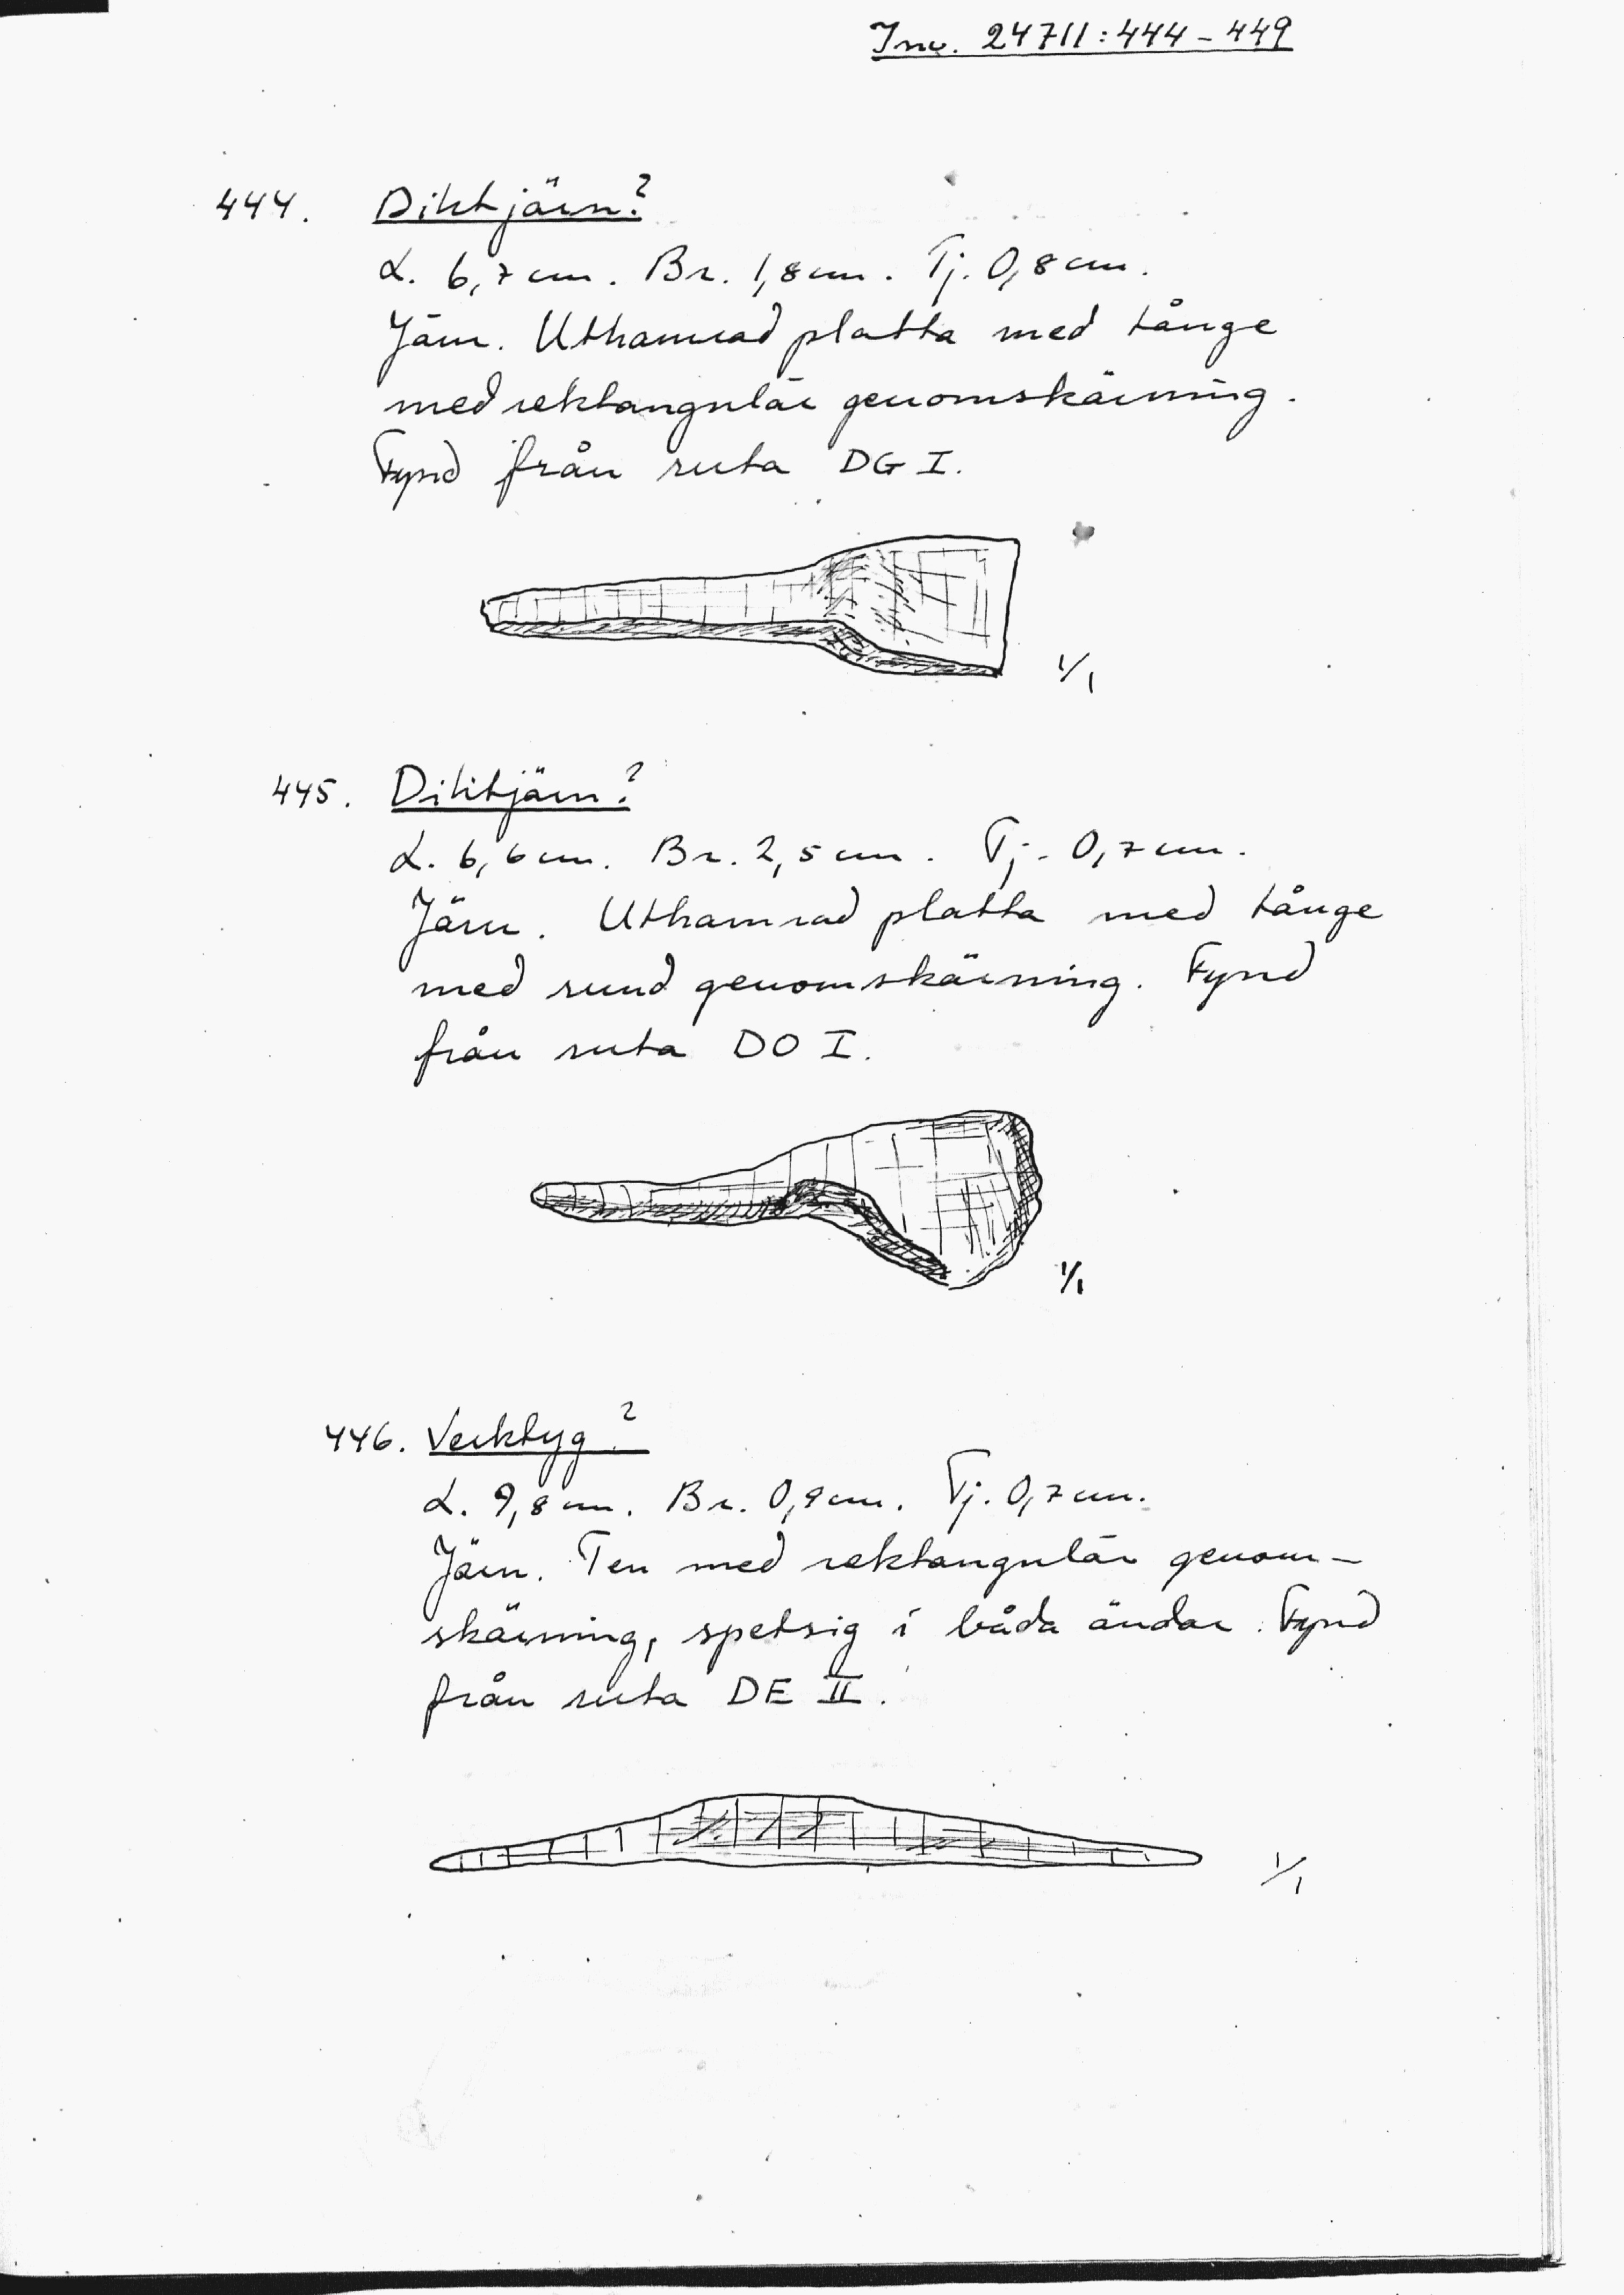 Inv. 24711:444-449
444. Diktjärn?
L. 6,7 cm. Br. 1,8 cm. Tj. 0,8 cm.
Järn. Uthamrad platta med tånge
med rektangulär genomskärning.
Fynd från ruta DG I.
1/1
445. Diktjärn?
L. 6,6 cm. Br. 2,5 cm. Tj. 0,7 cm.
Järn. Uthamrad platta med tånge
med rund genomskärning. Fynd
från ruta DO I.
1/1
446. Verktyg?
L. 9,8 cm. Br. 0,9 cm. Tj. 0,7 cm.
Järn. Ten med rektangulär genom-
skärning, spetsig i båda ändar. Fynd
från ruta DE II.
1/1